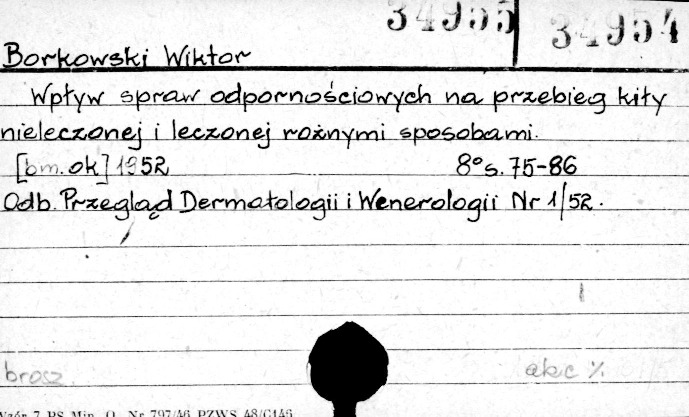 34955 34954
Borkowski Wiktor
Wpływ spraw odpornościowych na przebieg kiły
nieleczonej i leczonej rożnymi sposobami.
[bm. ok] 1952 8° s. 75-86
Odb. Przegląd Dermatologii i Wenerologii Nr 1/52.
brosz. akc %
Wzór 7 PS Min. O. Nr 797/46 PZWS 48/C146